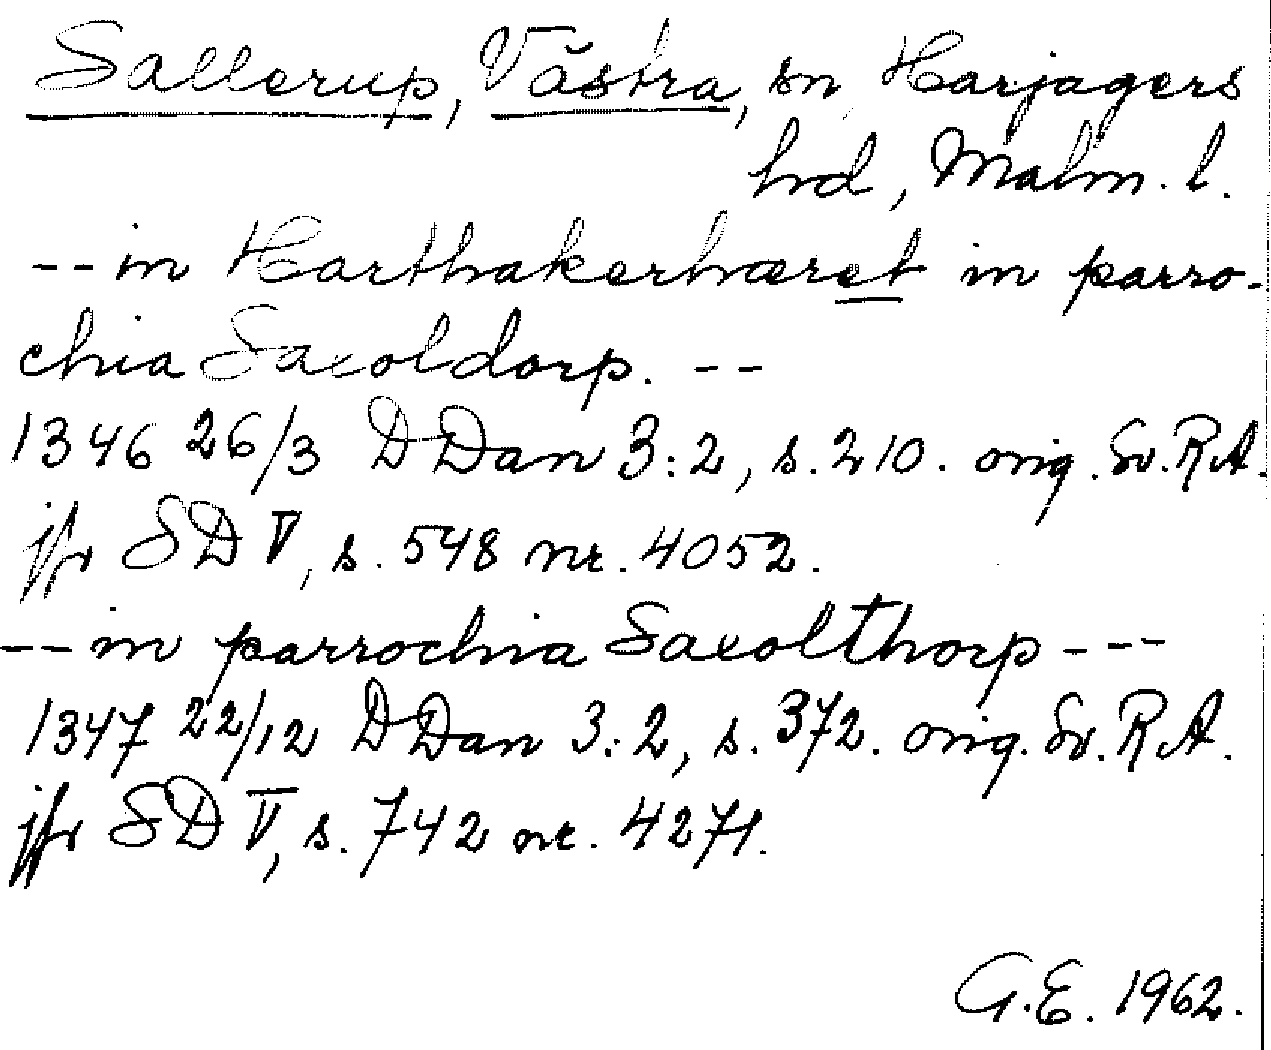 Sallerup, Västra, sn Harjagers
hrd, Malm. l.
-- in Harthakerhæret in parro-
chia Saxoldorp. --
1346 26/3 DDan 3:2, s. 210. orig. Sv. RA.
jfr SD V, s. 548 nr. 4052.
-- in parrochia Saxolthorp ---
1347 22/12 DDan 3:2, s. 372. orig. Sv. RA.
jfr SD V, s. 742 nr. 4271.
G.E. 1962.